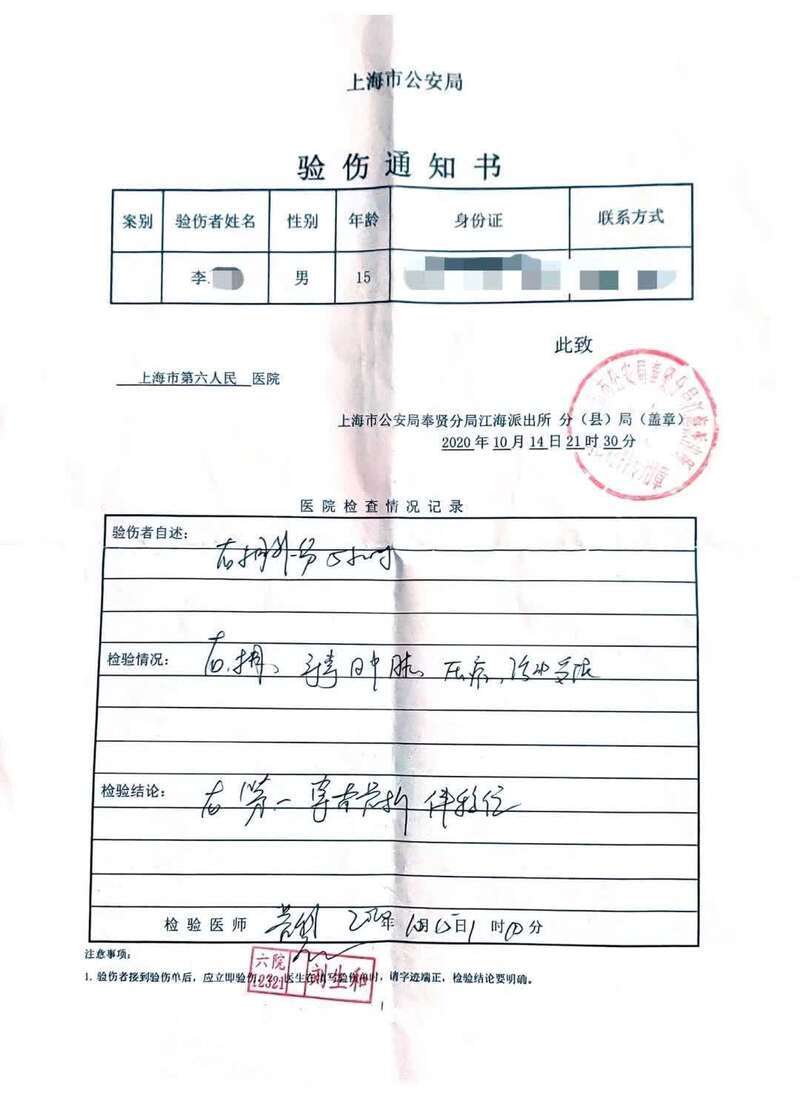 上海市公安局
验伤通知书
案别 验伤者姓名 性别 年龄 身份证 联系方式
李 男 15
此致
上海市第六人民 医院
上海市公安局奉贤分局江海派出所 分（县）局（盖章）
2020年10月14日21时30分
医院检查情况记录
验伤者自述：
右拇外伤
检验情况：
右拇 肿胀 压痛，活动受限
检验结论：
右第一掌骨骨折 伴移位
检验医师 2020年10月15日1时 分
注意事项：
六院 刘生和
12321
1. 验伤者接到验伤单后，应立即验伤 医生在填写验伤单时，请字迹端正，检验结论要明确。
1